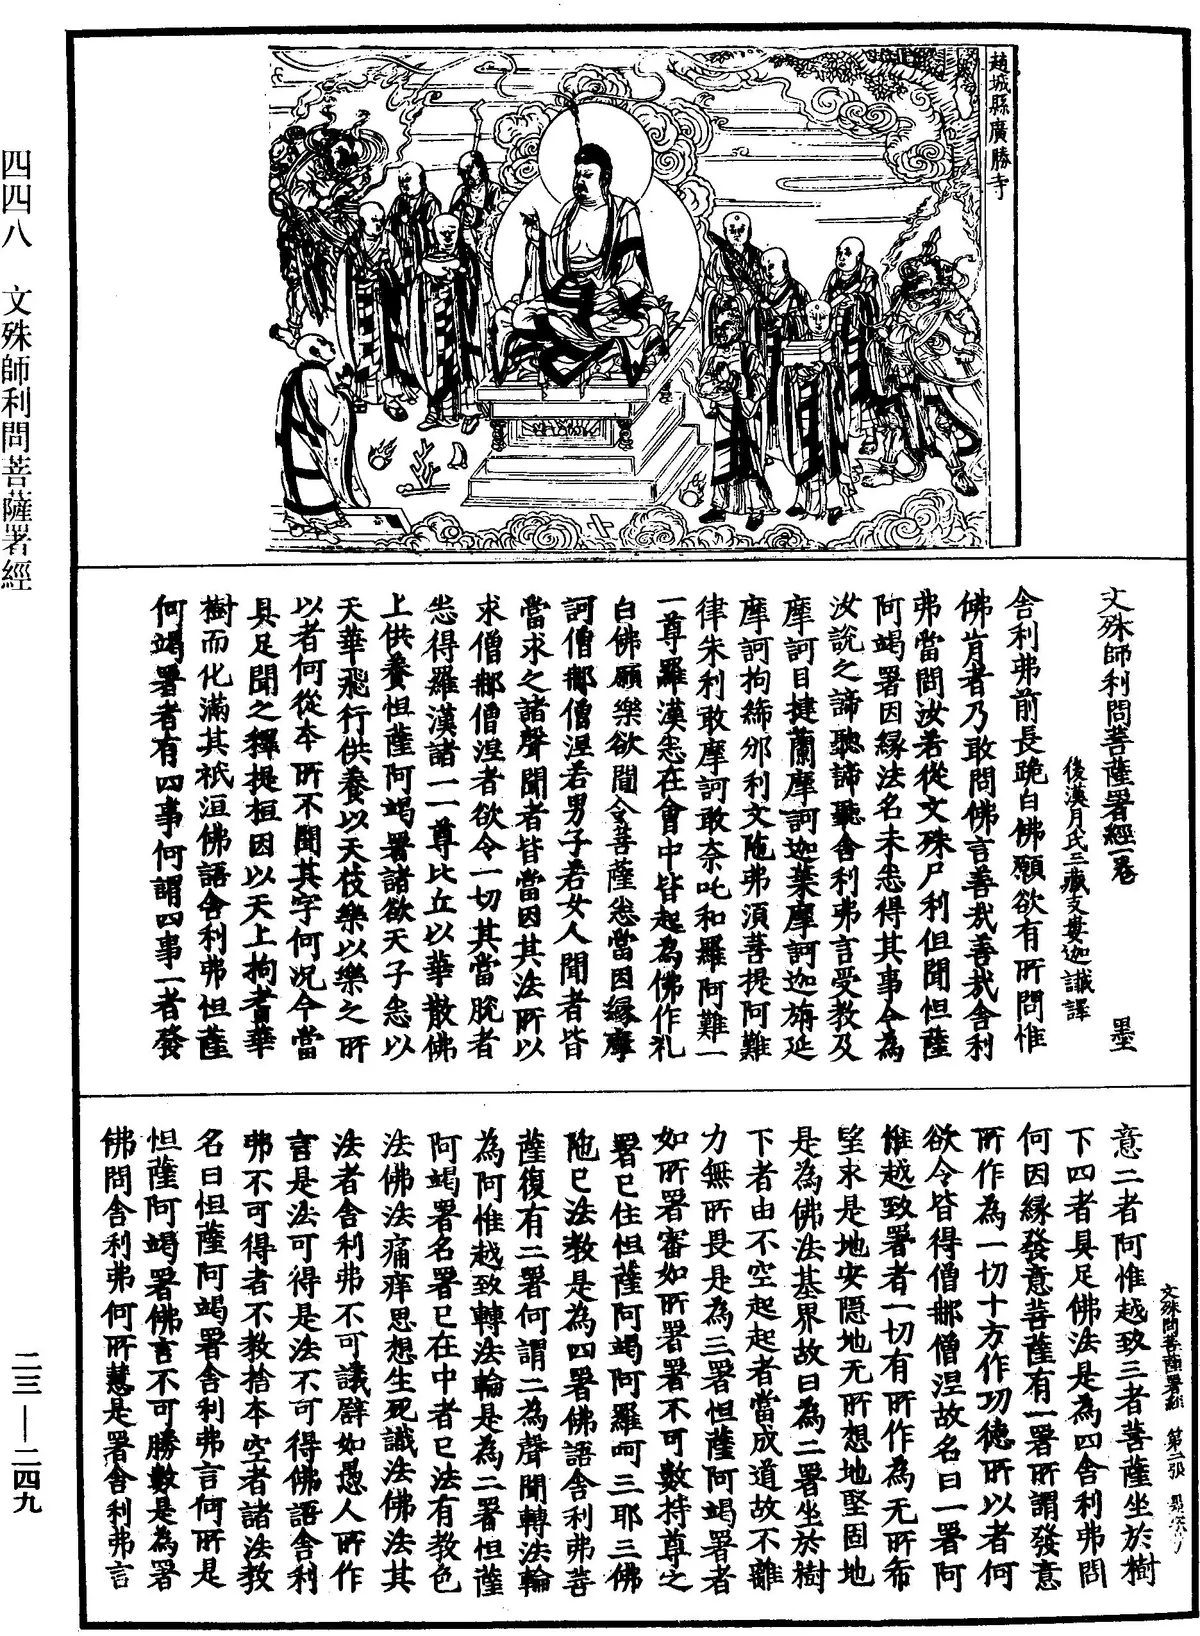 趙城縣廣勝寺
四四八　文殊師利問菩薩署經
文殊師利問菩薩署經一卷　墨
後漢月氏三藏支婁迦讖譯
舍利弗前長跪白佛願欲有所問惟
佛肯者乃敢問佛言善哉善哉舍利
弗當問汝若從文殊尸利但聞怛薩
阿竭署因緣法名未悉得其事今為
汝說之諦聽諦聽舍利弗言受教及
摩訶目揵蘭摩訶迦葉摩訶迦旃延
摩訶拘絺邠利文陁弗須菩提阿難
律朱利敢摩訶敢奈吒和羅阿難一
一尊羅漢悉在會中皆起為佛作礼
白佛願樂欲聞令菩薩悉當因緣摩
訶僧郍僧涅若男子若女人聞者皆
當求之諸聲聞者皆當因其法所以
求僧郍僧涅者欲令一切其當脫者
悉得羅漢諸一一尊比丘以華散佛
上供養怛薩阿竭署諸欲天子悉以
天華飛行供養以天伎樂以樂之所
以者何從本所不聞其字何況今當
具足聞之釋提桓因以天上拘耆華
樹而化滿其祇洹佛語舍利弗怛薩
何竭署者有四事何謂四事一者發
意二者阿惟越致三者菩薩坐於樹
下四者具足佛法是為四舍利弗問
何因緣發意菩薩有一署所謂發意
所作為一切十方作功德所以者何
欲令皆得僧郍僧涅故名曰一署阿
惟越致署者一切有所作為无所希
望求是地安隱地无所想地堅固地
是為佛法基界故曰為二署坐於樹
下者由不空起起者當成道故不離
力無所畏是為三署怛薩阿竭署者
如所署審如所署署不可數持尊之
署已住怛薩阿竭阿羅呵三耶三佛
陁已法教是為四署佛語舍利弗菩
薩復有二署何謂二為聲聞轉法輪
為阿惟越致轉法輪是為二署怛薩
阿竭署名署已在中者已法有教色
法佛法痛痒思想生死識法佛法其
法者舍利弗不可議譬如愚人所作
言是法可得是法不可得佛語舍利
弗不可得者不教捨本空者諸法教
名曰怛薩阿竭署舍利弗言何所是
怛薩阿竭署佛言不可勝數是為署
佛問舍利弗何所慧是署舍利弗言
文殊問菩薩署經　第二張
二三—二四九